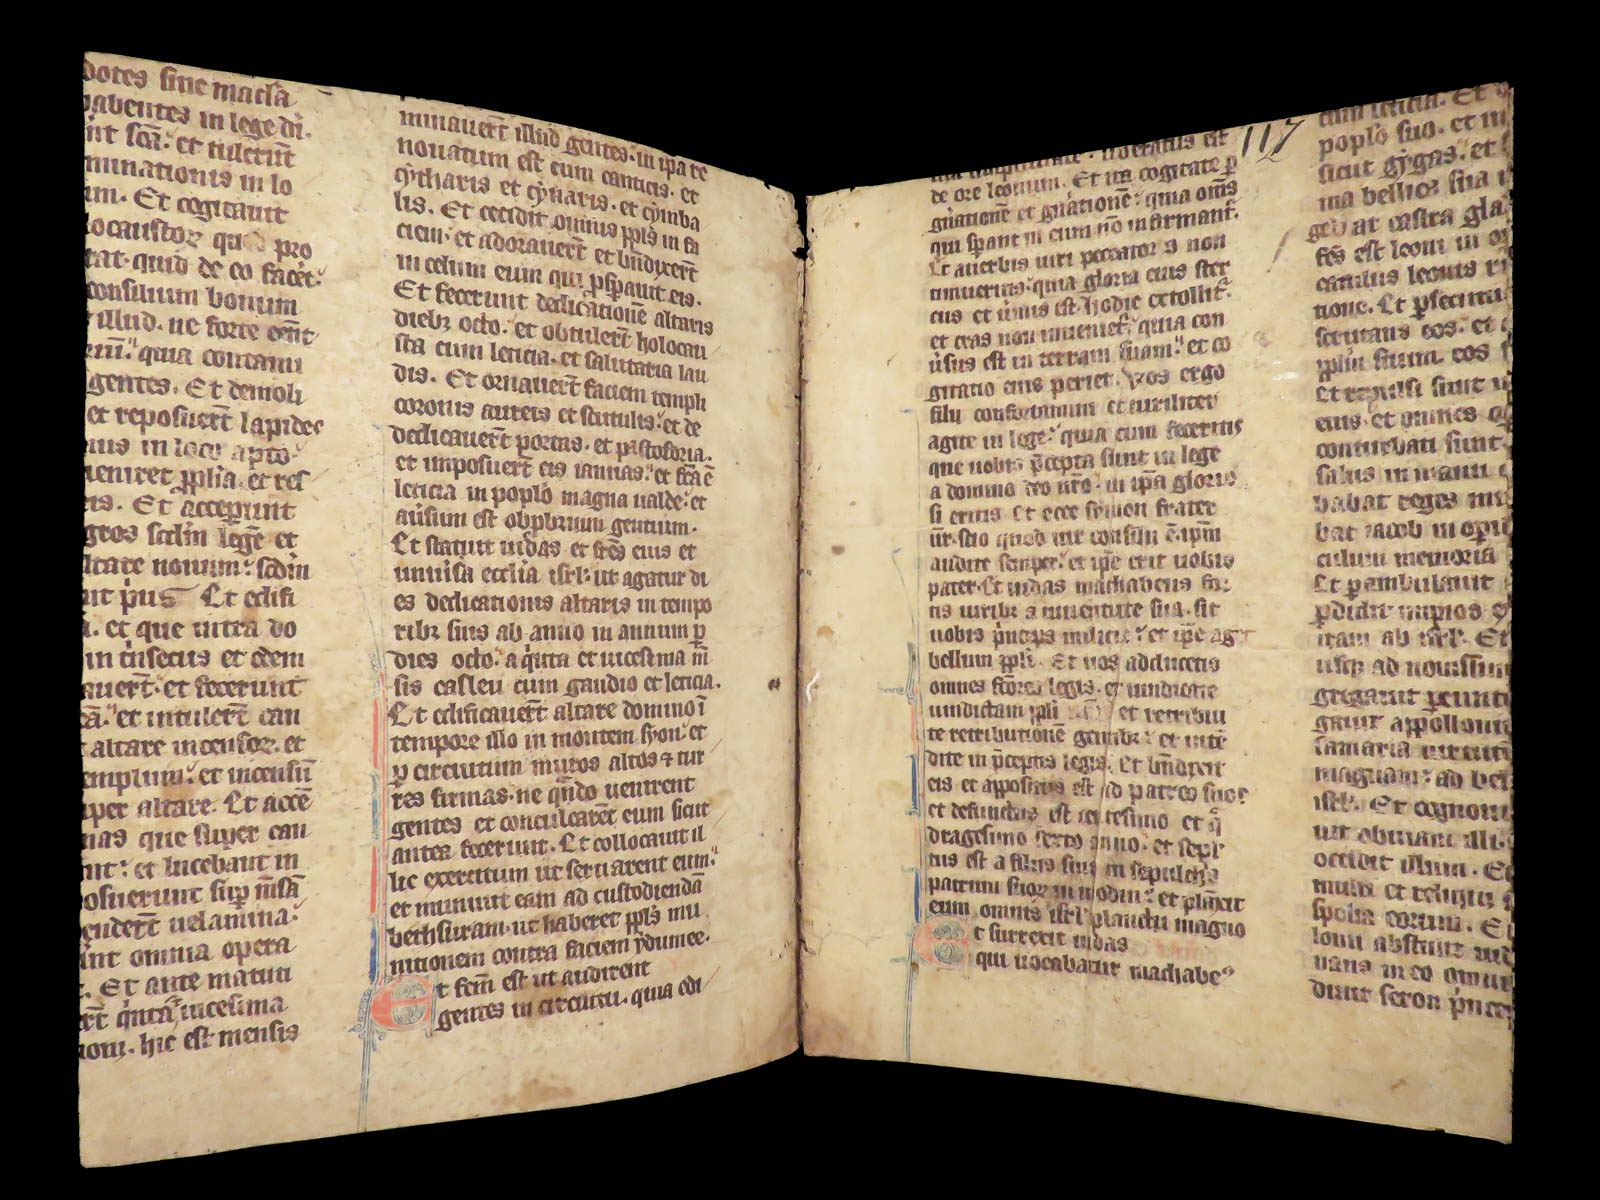 dotes sine macla
habentes in lege di.
int scā. et tulerūt
minationis in lo
um. Et cogitauit
locaustoꝝ quod pro
rat. quid de eo facēt.
consilium bonum
illud. ne forte eēnt
quia contami
gentes. Et demoli
et reposuerūt lapides
mus in loco apto.
ueniret ꝓplīa. et res
eis. Et acceperunt
gros scdm legē et
altare nouum. scdm
it pus Et edifi
a. et que intra do
in tnsecus et edem
auerūt. et fecerunt
ēa. et intulerūt can
altare incensoꝝ. et
emplum. et incensū
uper altare. Et accē
nas que super can
nt. et lucebant in
osuerunt sup mēsā
enderūt uelamina.
int omnia opera
Et ante matuti
erūt qinta uicesima
noni. hic est mensis
minauerūt illud gentes. in ipa re
nouatum est cum canticis. et
cytharis et cynaris. et cymba
lis. Et cecidit omnis ppls in fa
ciem. et adorauerūt et bndixerūt
in celum eum qui psperauit eis.
Et fecerunt dedicationē altaris
diebꝫ octo. et obtulerūt holocau
sta cum leticia. et salutaria lau
dis. Et ornauerūt faciem templi
coronis aureis et scutulis. et de
dedicauerūt portas. et pastoforia.
et imposuerūt eis ianuas. et fcā ē
leticia in poplo magna ualde. et
auersum est obpbrium gentium.
Et statuit iudas et frēs eius et
uniūsa ecclia isrl. ut agatur di
es dedicationis altaris in tempo
ribꝫ suis ab anno in annum p
dies octo. a qinta et uicesima mē
sis casleu cum gaudio et leticia.
Et edificauerūt altare domino ī
tempore illo in montem syon. et
p circuitum muros altos ⁊ tur
res firmas. ne qndo uenirent
gentes et conculcarēt eum sicut
antea fecerunt. Et collocauit il
lic exercitum ut seruarent eum.
et muniuit eam ad custodiendā
bethsuram. ut haberet ppls mu
nitionem contra faciem ydumee.
Et fcm est ut audirent
gentes in circuitu. quia edi
117
liberatus est
de ore leonum. Et ita cogitate p
gnationē et gnationē. quia omīs
qui sperant in eum nō infirmant.
Et a uerbis uiri peccatoris non
timueritis. quia gloria eius ster
cus et uermis est. hodie extollit.
et cras non inueniet. quia con
uersus est in terram suam. et co
gitatio eius periet. Vos ergo
filii confortamini et uiriliter
agite in lege. quia cum feceritis
que uobis pcepta sunt in lege
a domino deo uro. in ipa gloriosi
si eritis. Et ecce symon frater
ur. scio quod uir consilii ē. ipm
audite semper. et ipe erit uobis
pater. Et iudas machabeus for
tis uiribꝫ a iuuentute sua. sit
uobis pinceps milicie. et ipe aget
bellum ppli. Et uos adducetis
omnes fctores legis. et uindicate
uindictam ppli et retribui
te retributionē gentibꝫ. et intē
dite in pceptis legis. Et bndixit
eis. et appositus est ad patres suos
et defunctus est centesimo et q
dragesimo sexto anno. et sepl
tus est a filiis suis in sepulchis
patrum suoꝝ in modin. et plāxit
eum omnis isrl planctu magno
Et surrexit iudas
qui uocabatur machabeꝰ
cum leticia. Et
poplo suo. et in
sicut gygas. et
ma bellica sua
gebat castra gla
fcs est leoni in
catulus leonis
tione. Et psecutus
scrutans eos. et
pplm suum. eos
Et repulsi sunt
eius. et omnes
conturbati sunt
salus in manu
babat reges mu
bat iacob in opi
culum memoria
Et pambulauit
pdidit impios
iram ab isrl. Et
usqꝫ ad nouissim
gregauit peunt
gauit appollonius
samaria uirtutē
magnam. ad bel
isrl. Et cognou
uit obuiam illi.
occidit illum. Et
multi et reliqui
spolia eorum. Et
lonii abstulit iud
nans in eo omni
diuit seron pinceps